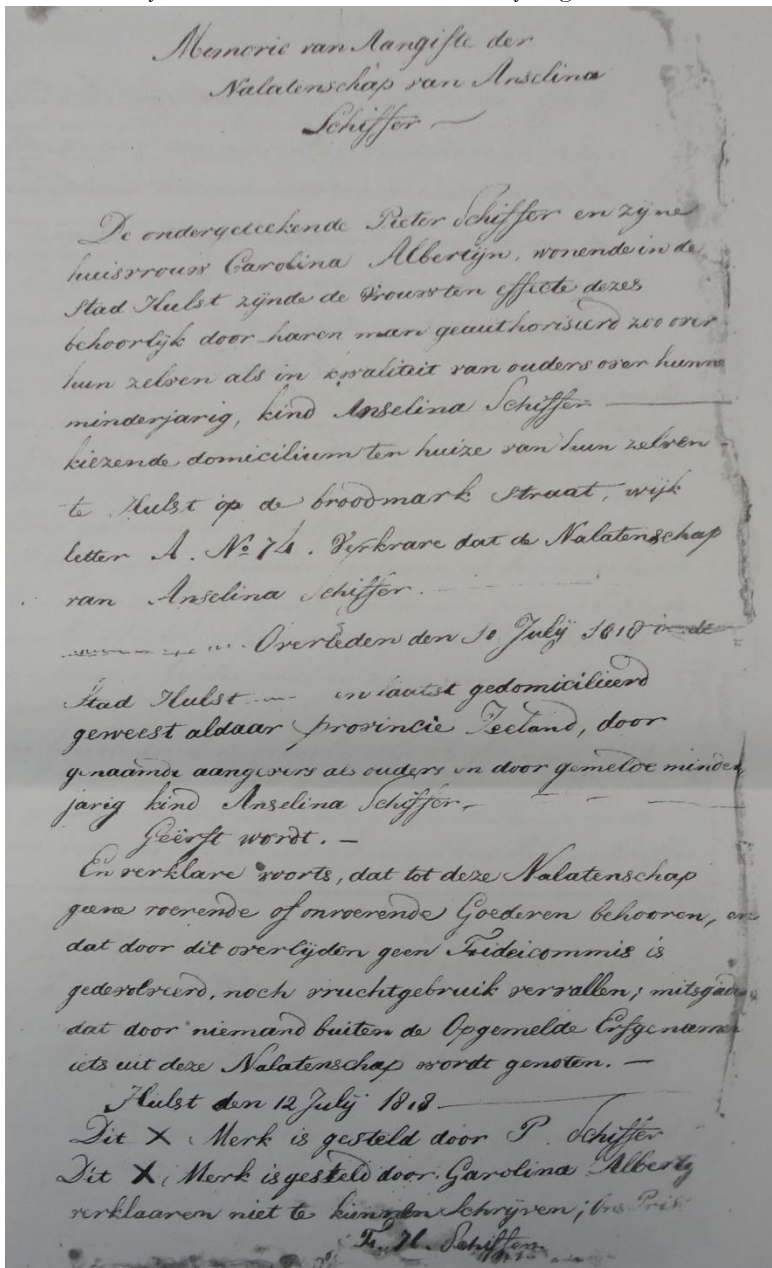 Memorie van Aangifte der
Nalatenschap van Anselina
Schiffer —
De ondergeteekende Pieter Schiffer en zijne
huisvrouw Carolina Albertijn, wonende in de
Stad Hulst zijnde de vrouw ten effecte dezes
behoorlijk door haren man geauthoriseerd zoo over
hun zelven als in kwaliteit van ouders over hunne
minderjarig, kind Anselina Schiffer —
kiezende domicilium ten huize van hun zelven -
te Hulst op de broodmark straat, wijk
letter A. No 74. Verkrare dat de Nalatenschap
van Anselina Schiffer.
Overleden den 10 July 1818 in de
Stad Hulst en laatst gedomicilieerd
geweest aldaar provincie Zeeland, door
genaamde aangevers als ouders en door gemelde minder
jarig kind Anselina Schiffer,
Geërft wordt. —
En verklare voorts, dat tot deze Nalatenschap
geene roerende of onroerende Goederen behooren, en
dat door dit overlijden geen Fideicommis is
gedevolveerd, noch vruchtgebruik vervallen; mitsgad
dat door niemand buiten de Opgemelde Erfgenamen
iets uit deze Nalatenschap wordt genoten. —
Hulst den 12 July 1818 —
Dit X Merk is gesteld door P. Schiffer
Dit X, Merk is gesteld door Garolina Alberty
verklaaren niet te kunnen Schrijven; Ons
F. H. Schiffer